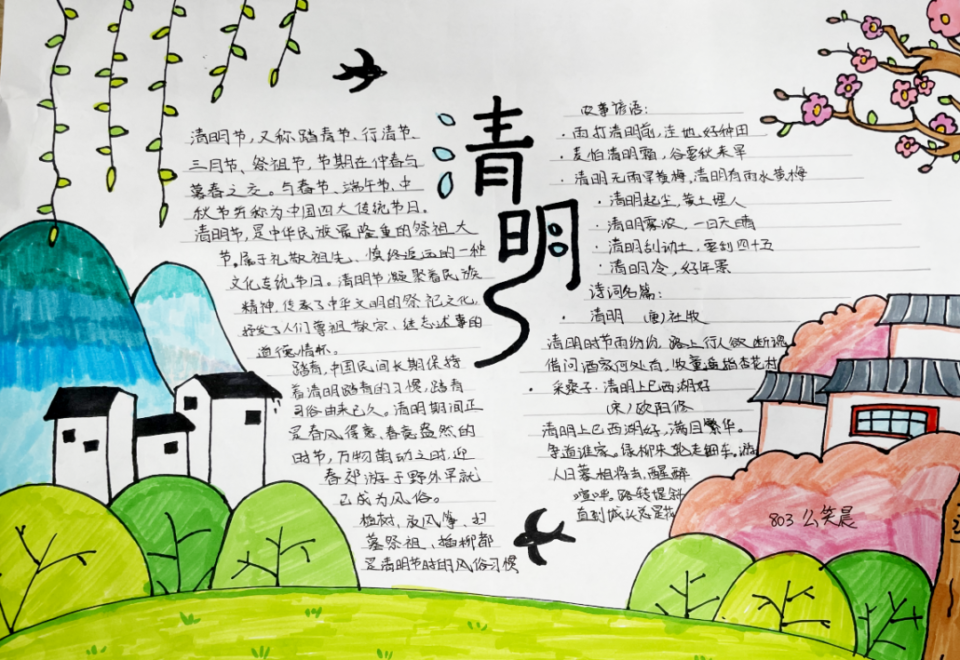 清明
清明节,又称踏青节、行清节、
三月节、祭祖节,节期在仲春与
暮春之交。与春节、端午节、中
秋节并称为中国四大传统节日。
清明节,是中华民族最隆重的祭祖大
节。属于礼敬祖先、慎终追远的一种
文化传统节日。清明节凝聚着民族
精神,传承了中华文明的祭祀文化,
抒发了人们尊祖敬宗、继志述事的
道德情怀。
踏青,中国民间长期保持
着清明踏青的习惯,踏青
习俗由来已久。清明期间正
是春风得意、春意盎然的
时节,万物萌动之时,迎
春郊游于野外早就
已成为风俗。
植树、放风筝、扫
墓祭祖、插柳都
是清明节时的风俗习惯
农事谚语:
·雨打清明前,洼地好种田
·麦怕清明霜,谷要秋来旱
·清明无雨旱黄梅,清明有雨水黄梅
·清明起尘,黄土埋人
·清明雾浓,一日天晴
·清明刮动土,要刮四十五
·清明冷,好年景
诗词名篇:
·清明 (唐)杜牧
清明时节雨纷纷,路上行人欲断魂
借问酒家何处有,牧童遥指杏花村
·采桑子·清明上巳西湖好
(宋)欧阳修
清明上巳西湖好,满目繁华。
争道谁家。绿柳朱轮走钿车。游
人日暮相将去,醒醉
喧哗。路转堤斜
直到城头总是花
803 公笑晨